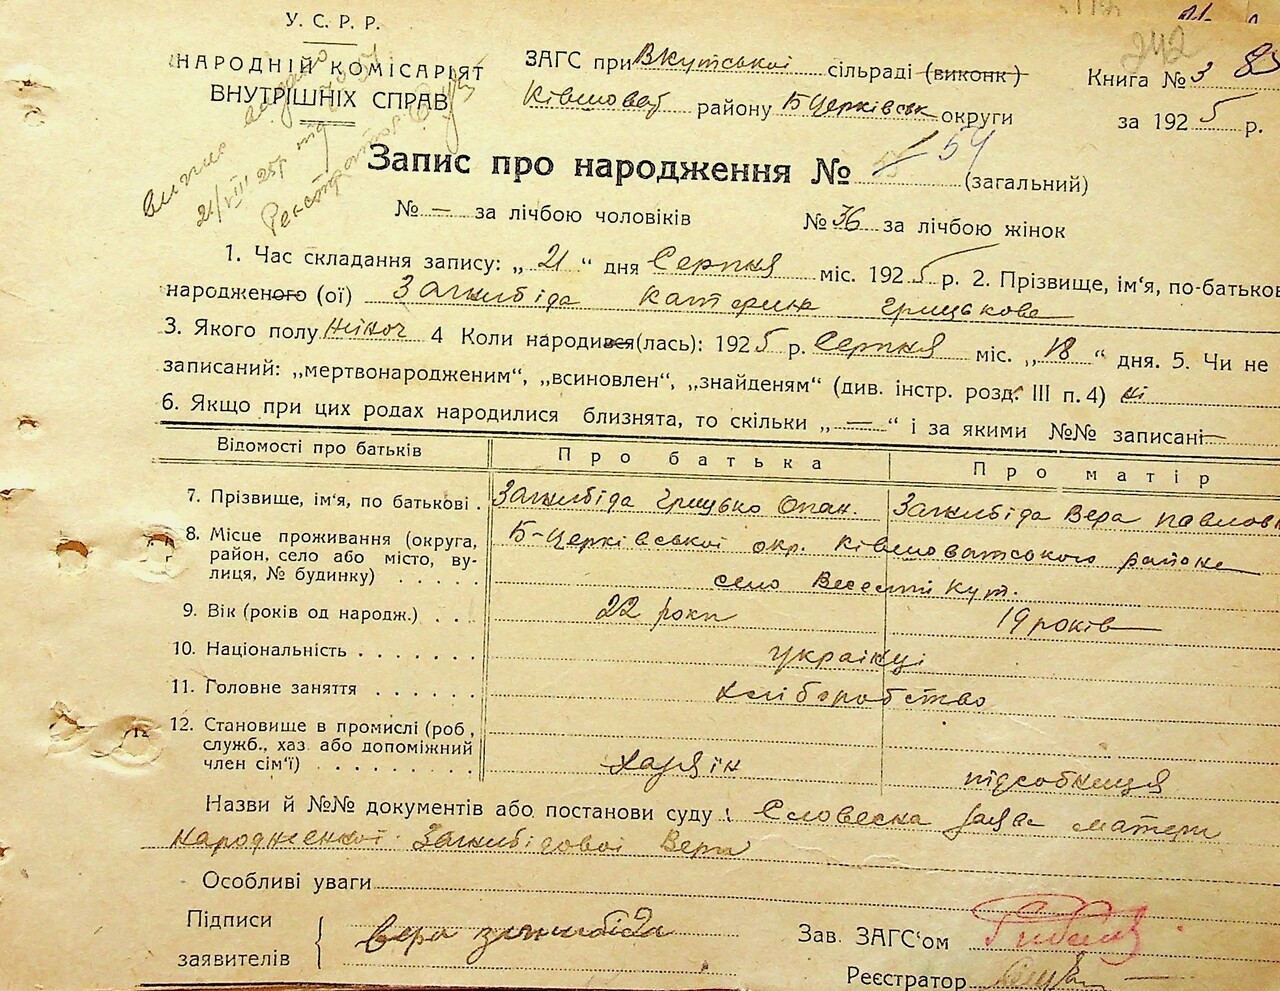 У. С. Р. Р.
НАРОДНІЙ КОМІСАРІЯТ
ВНУТРІШНІХ СПРАВ
ЗАГС при Вкутської сільраді (виконк)
району Б-Церківськ округи
Книга № 3
за 1925 р.
242
21/VIII 25р
Запис про народження № 54 (загальний)
№ — за лічбою чоловіків № 36 за лічбою жінок
1. Час складання запису: „ 21 “ дня Серпня міс. 1925 р. 2. Прізвище, ім‘я, по-батькові
народженого (ої) Загнибіда Катерина Грицькова
3. Якого полу жіноч 4 Коли народився (лась): 1925 р. Серпня міс. „ 18 “ дня. 5. Чи не
записаний: „мертвонародженим“, „всиновлен“, „знайденям“ (див. інстр. розд. III п. 4) ні
6. Якщо при цих родах народилися близнята, то скільки „ — “ і за якими №№ записані —
Відомості про батьків Про батька Про матір
7. Прізвище, ім'я, по батькові . Загнибіда Грицько Опан. Загнибіда Вера Павлов
8. Місце проживання (округа, район, село або місто, вулиця, № будинку) . . . . . Б-Церківської окр. Ківшоватського району
село Веселий Кут.
9. Вік (років од народж.) . . . 22 роки 19 років
10. Національність . . . . . . . українці
11. Головне заняття . . . . . . хліборобство
12. Становище в промислі (роб, служб., хаз або допоміжний член сім'ї) . . . . . . . . хазяїн підсобниця
Назви й №№ документів або постанови суду : Словесна заява матери
народженної Загнибідової Вери
Особливі уваги
Підписи
заявителів
Вера загнибіда
Зав. ЗАГС‘ом
Реєстратор